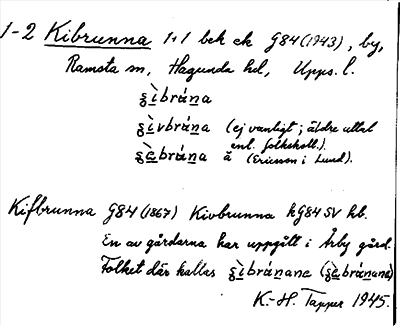 1-2 Kibrunna 1+1 bek ek G84 (1943), by,
Ramsta sn, Hagunda hd, Upps. l.
ş̀ìbrána
ş̀ìvbrána (ej vanligt; äldre uttal
enl. folketoll.).
ă (Ericsson i Lund).
Kifbrunna G84 (1867) Kivbrunna hG84 SV hb.
En av gårdarna har uppgått i Årby gård.
Folket där kallas
K.-H. Tapper 1945.